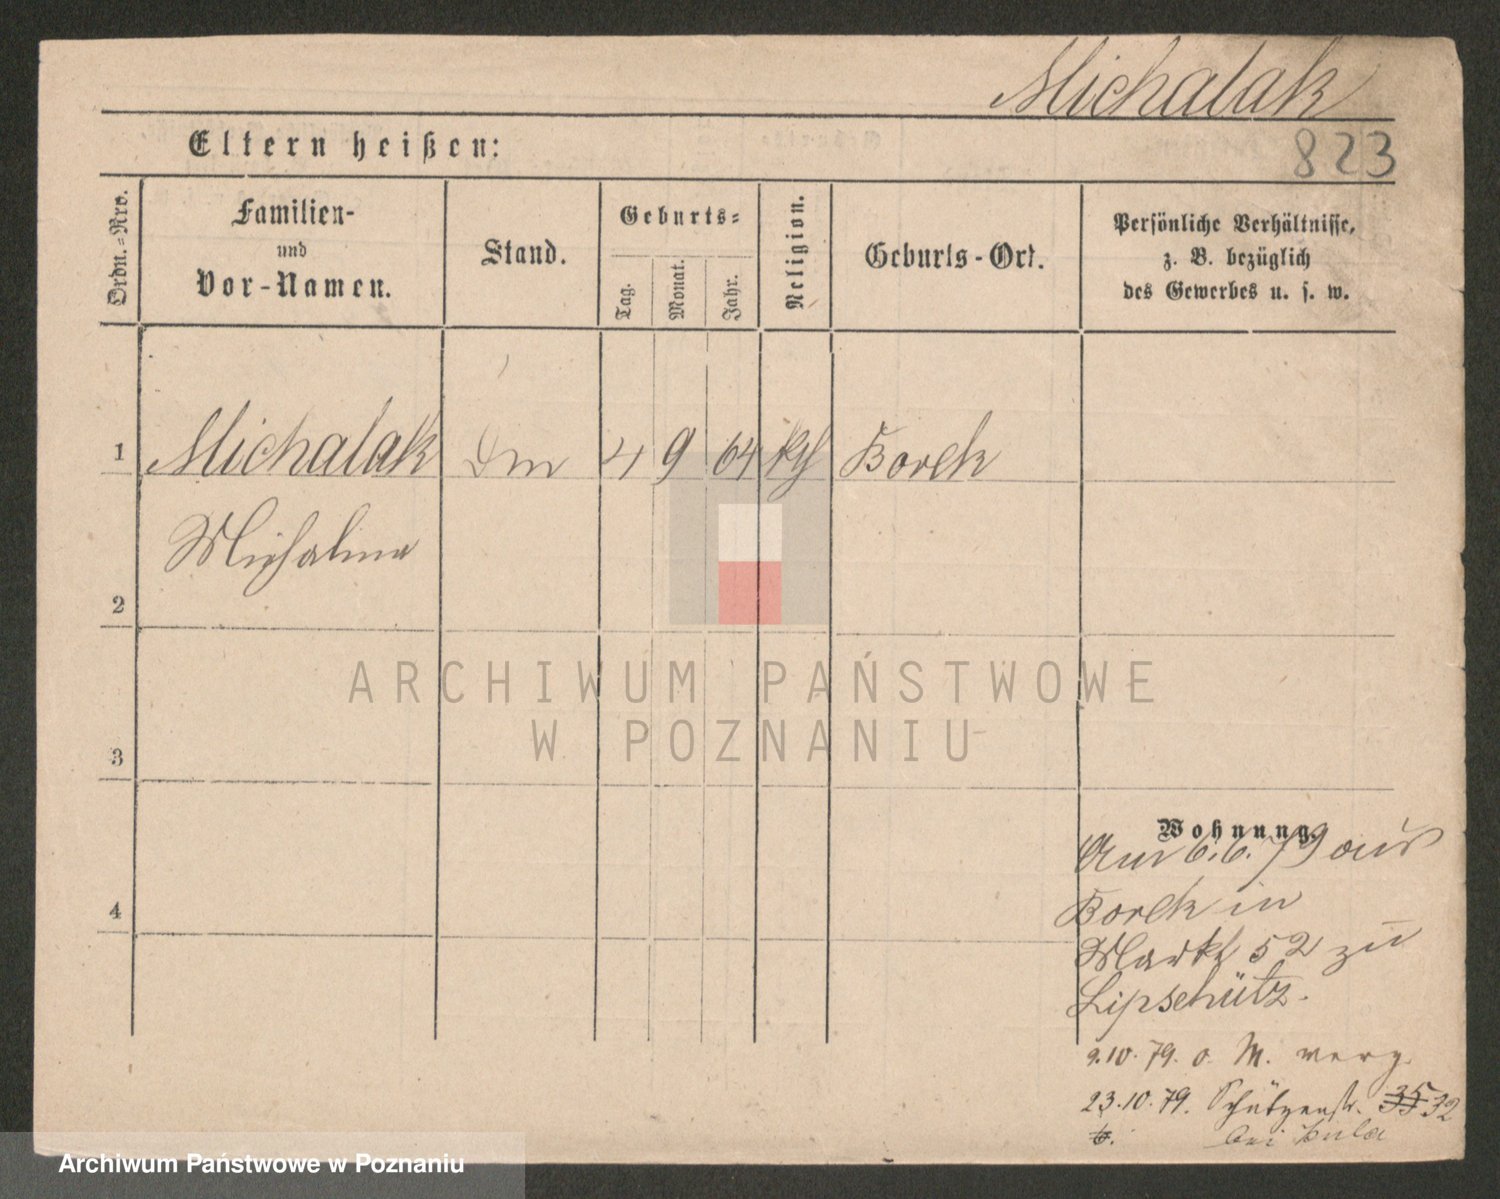 Michalak
823
Eltern heißen:
Ordn.=Nro.
Familien-
und
Vor-Namen.
Stand.
Geburts=
Tag.
Monat.
Jahr.
Religion.
Geburts-Ort.
Persönliche Verhältnisse,
z. B. bezüglich
des Gewerbes u. s. w.
1 Michalak 4 9 64 kth Borek
Michalina
2
3
4
ARCHIWUM PAŃSTWOWE
W POZNANIU
Wohnung.
Am 6.6.79 aus
Borek in
Markt 52 zu
Lipschütz.
9.10.79. o. M. verz.
23.10.79. Schützenstr. 35 32
bei
Archiwum Państwowe w Poznaniu